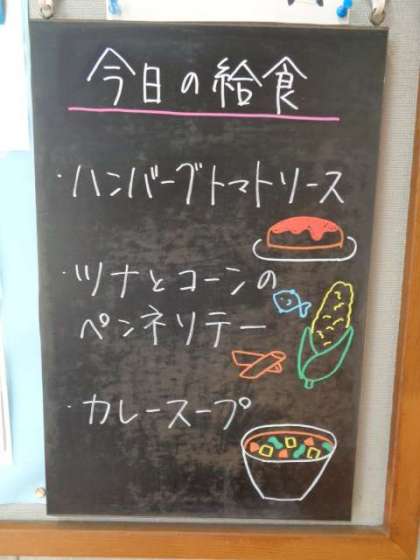 今日の給食
・ハンバーグトマトソース
・ツナとコーンの
ペンネソテー
・カレースープ